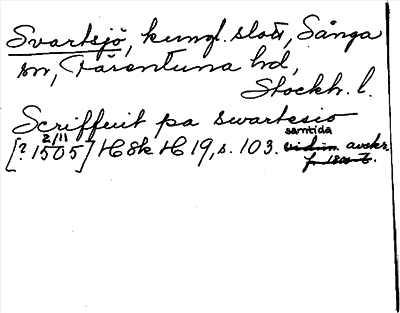 Svartsjö, kungl. slott, Sånga
sn, Färentuna hd,
Stockh. l.
Scriffuit pa swartesio
[? 2/11 1505] HSk H 19, s. 103. samtida avskr.